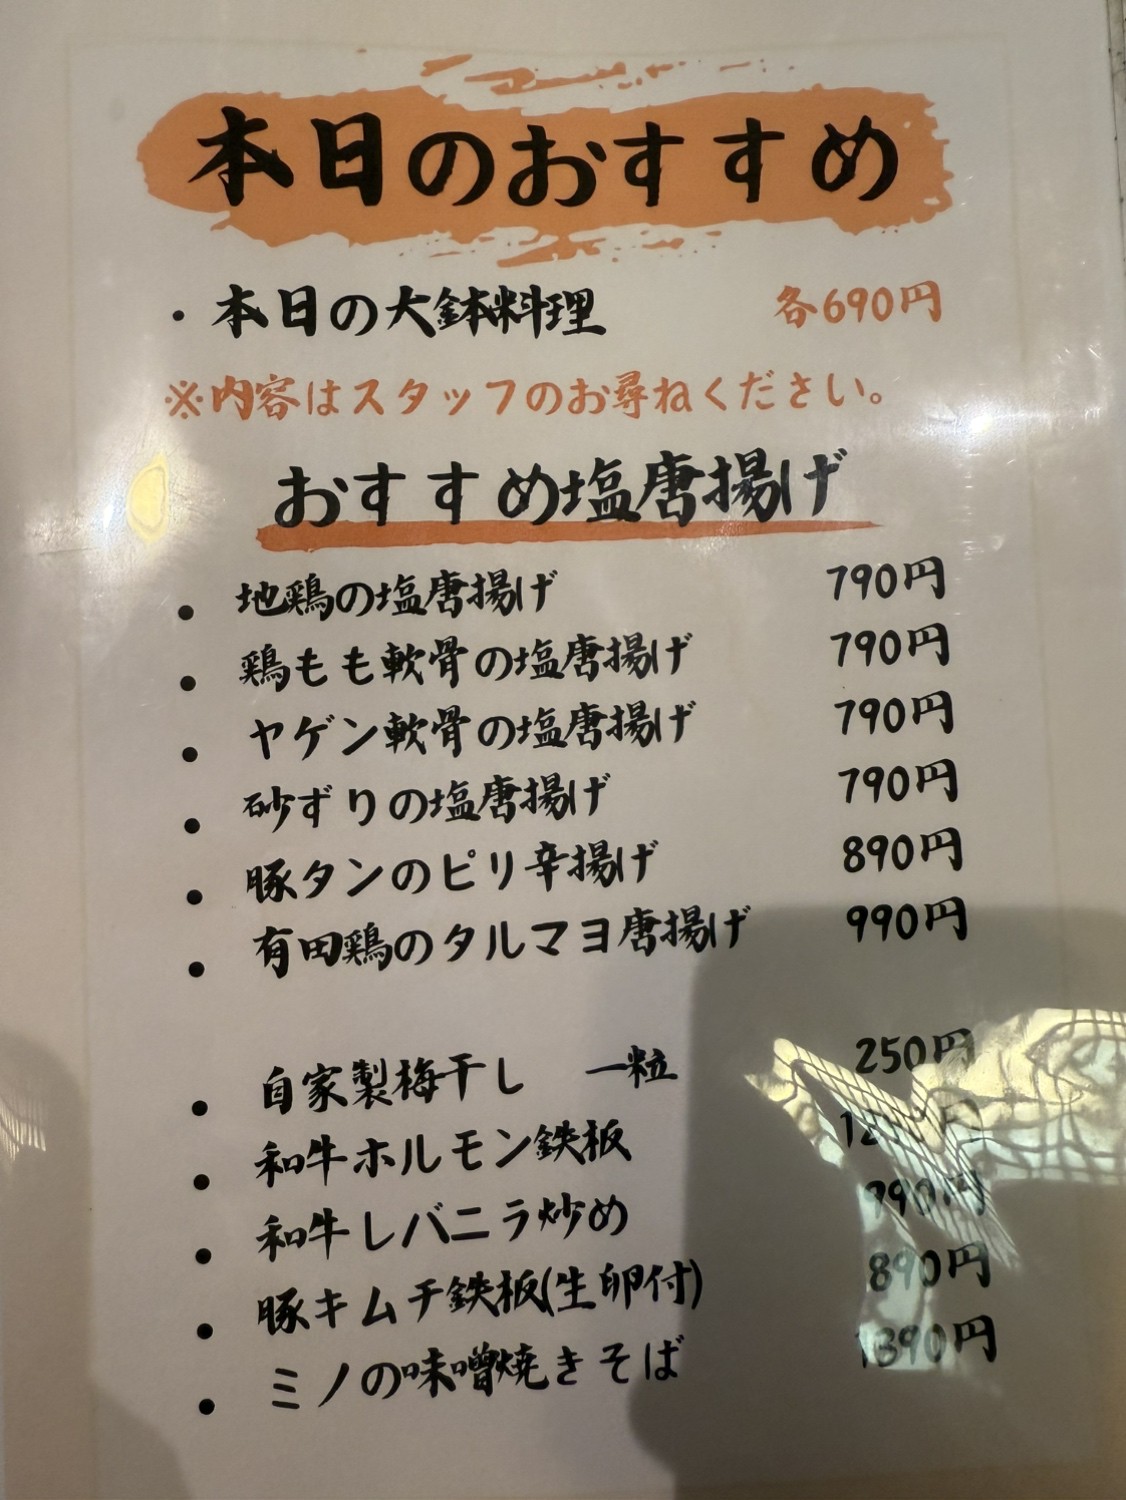 本日のおすすめ
・本日の大鉢料理 各690円
※内容はスタッフのお尋ねください。
おすすめ塩唐揚げ
● 地鶏の塩唐揚げ 790円
● 鶏もも軟骨の塩唐揚げ 790円
● ヤゲン軟骨の塩唐揚げ 790円
● 砂ずりの塩唐揚げ 790円
● 豚タンのピリ辛揚げ 890円
● 有田鶏のタルマヨ唐揚げ 990円
● 自家製梅干し 一粒 250円
● 和牛ホルモン鉄板
● 和牛レバニラ炒め 990円
● 豚キムチ鉄板(生卵付) 890円
● ミノの味噌焼きそば 1390円